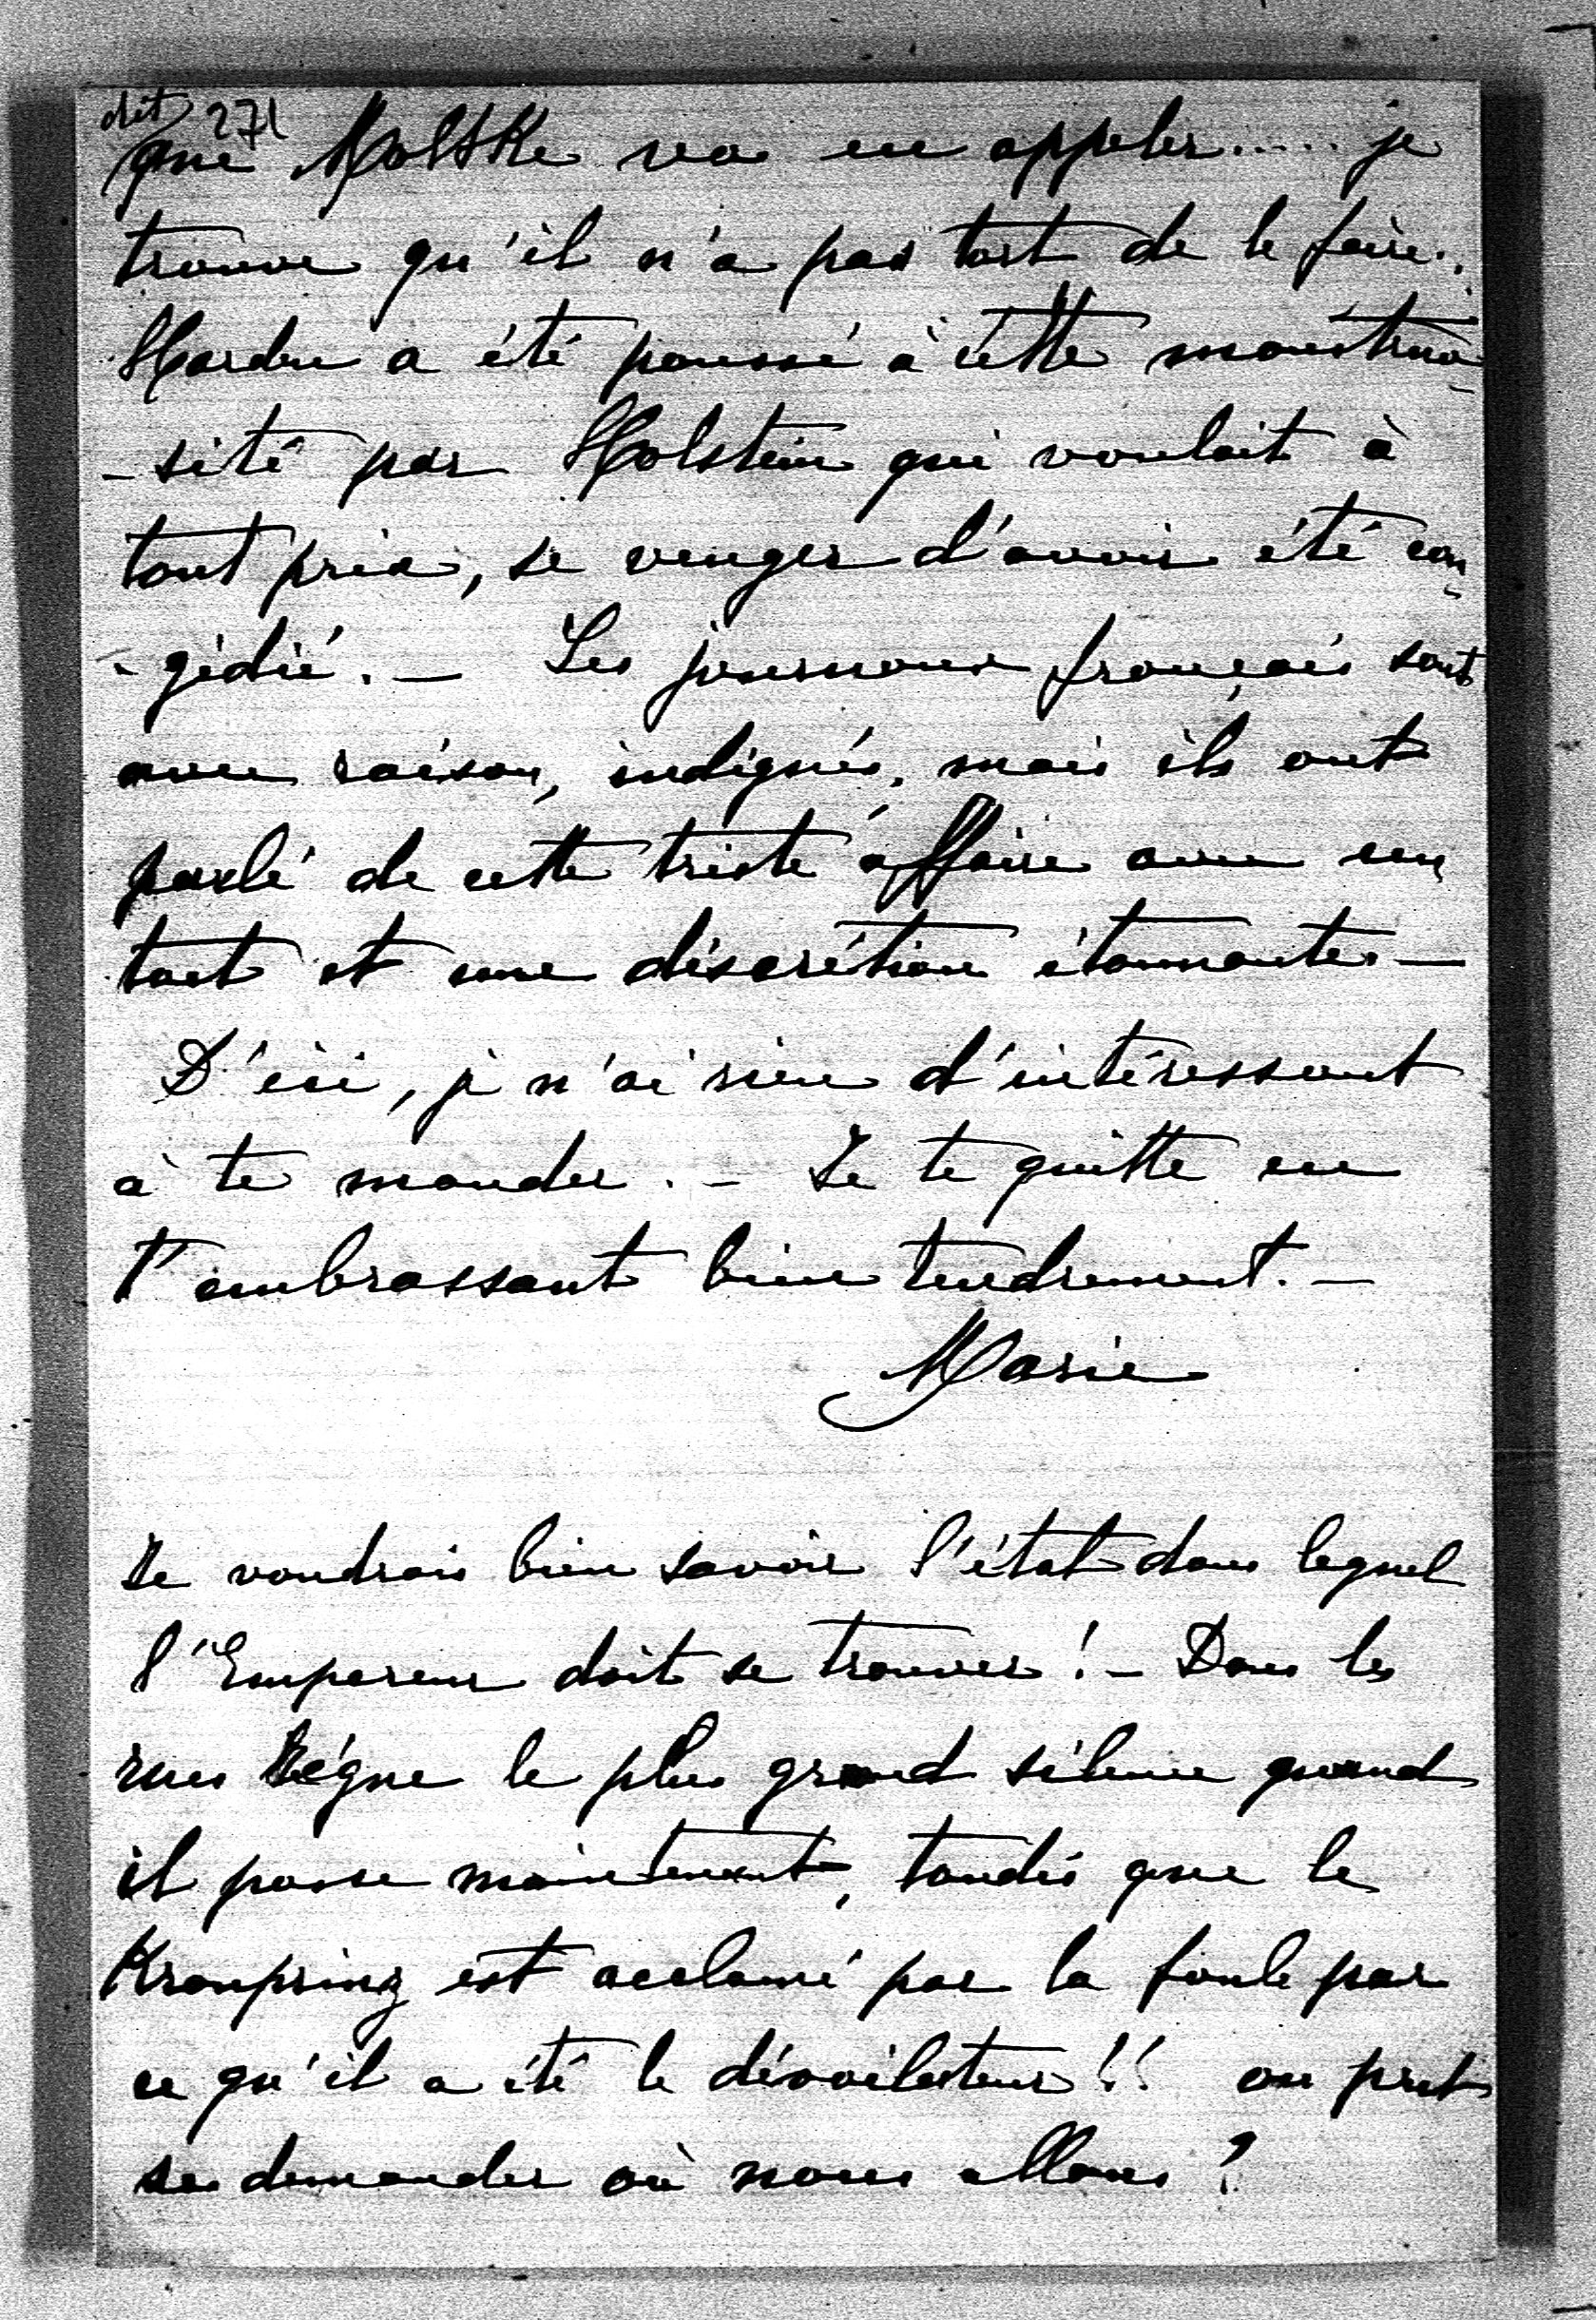 dit 271
que Moltke va en appeler..... je
trouve qu'il n'a pas tort de le faire..
Harden a été poussé à cette monstruo
-sité par Holstein qui voulait à
tout prix, se venger d'avoir été con
-gédié. — Les journaux français sont
avec raison, indignés, mais ils ont
parlé de cette triste affaire avec un
tact et une discrétion étonnantes —
D'ici, je n'ai rien d'intéressant
à te mander. — Je te quitte en
t'embrassant bien tendrement. —
Marie
Je voudrais bien savoir l'état dans lequel
l'Empereur doit se trouver ! — Dans les
rues règne le plus grand silence quand
il passe maintenant, tandis que le
Kronprinz est acclamé par la foule par
ce qu'il a été le dévoilateur !! on peut
se demander où nous allons ?